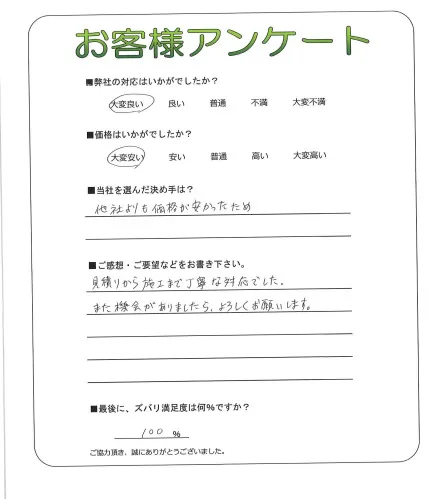 お客様アンケート
■弊社の対応はいかがでしたか？
大変良い 良い 普通 不満 大変不満
■価格はいかがでしたか？
大変安い 安い 普通 高い 大変高い
■当社を選んだ決め手は？
他社よりも価格が安かったため
■ご感想・ご要望などをお書き下さい。
見積りから施工まで丁寧な対応でした.
また機会がありましたら、よろしくお願いします。
■最後に、ズバリ満足度は何％ですか？
100 ％
ご協力頂き、誠にありがとうございました。